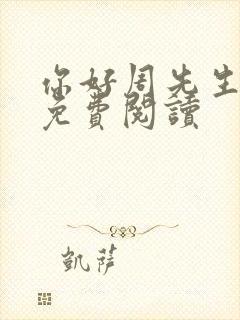 你好周先生
免費閱讀
凱薩